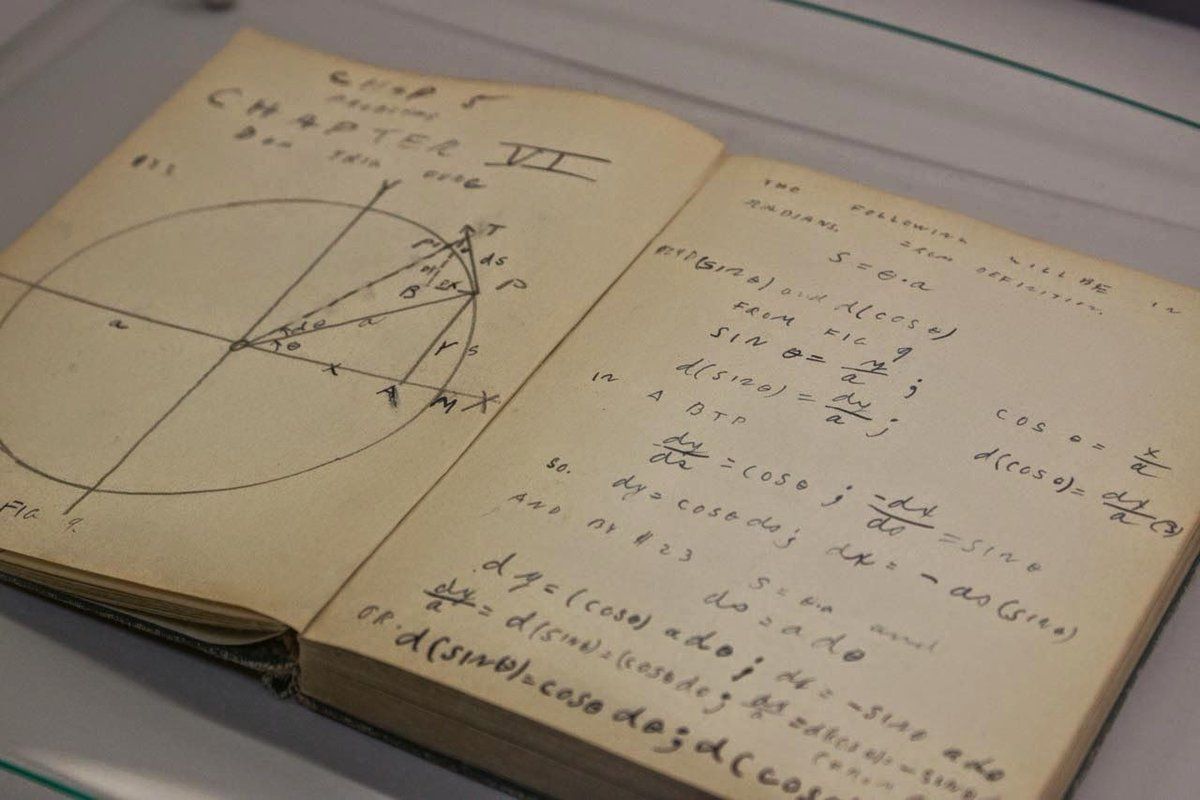 CHAP 5
CHAPTER VI
Y
T
P'
ds
P
B
dθ
a
a
θ
Y
S
X
A
M
X
FIG 9.
THE FOLLOWING WILL BE IN
RADIANS. FROM DEFINITION.
S = θ·a
(sin θ) and d(cos θ)
FROM FIG 9
SIN θ = y/a ; COS θ = x/a
d(sin θ) = dy/a ; d(cos θ) = dx/a (3)
IN A BTP
dy/ds = cos θ ; -dx/ds = sin θ
SO. dy = cos θ ds ; dx = - ds (sin θ)
AND BY # 23 S = θ·a and
ds = a dθ
dy = (cos θ) a dθ ; dx = - sin θ a dθ
dy/a = d(sin θ) = (cos θ) dθ ;
OR. d(sin θ) = cos θ dθ ; d(cos